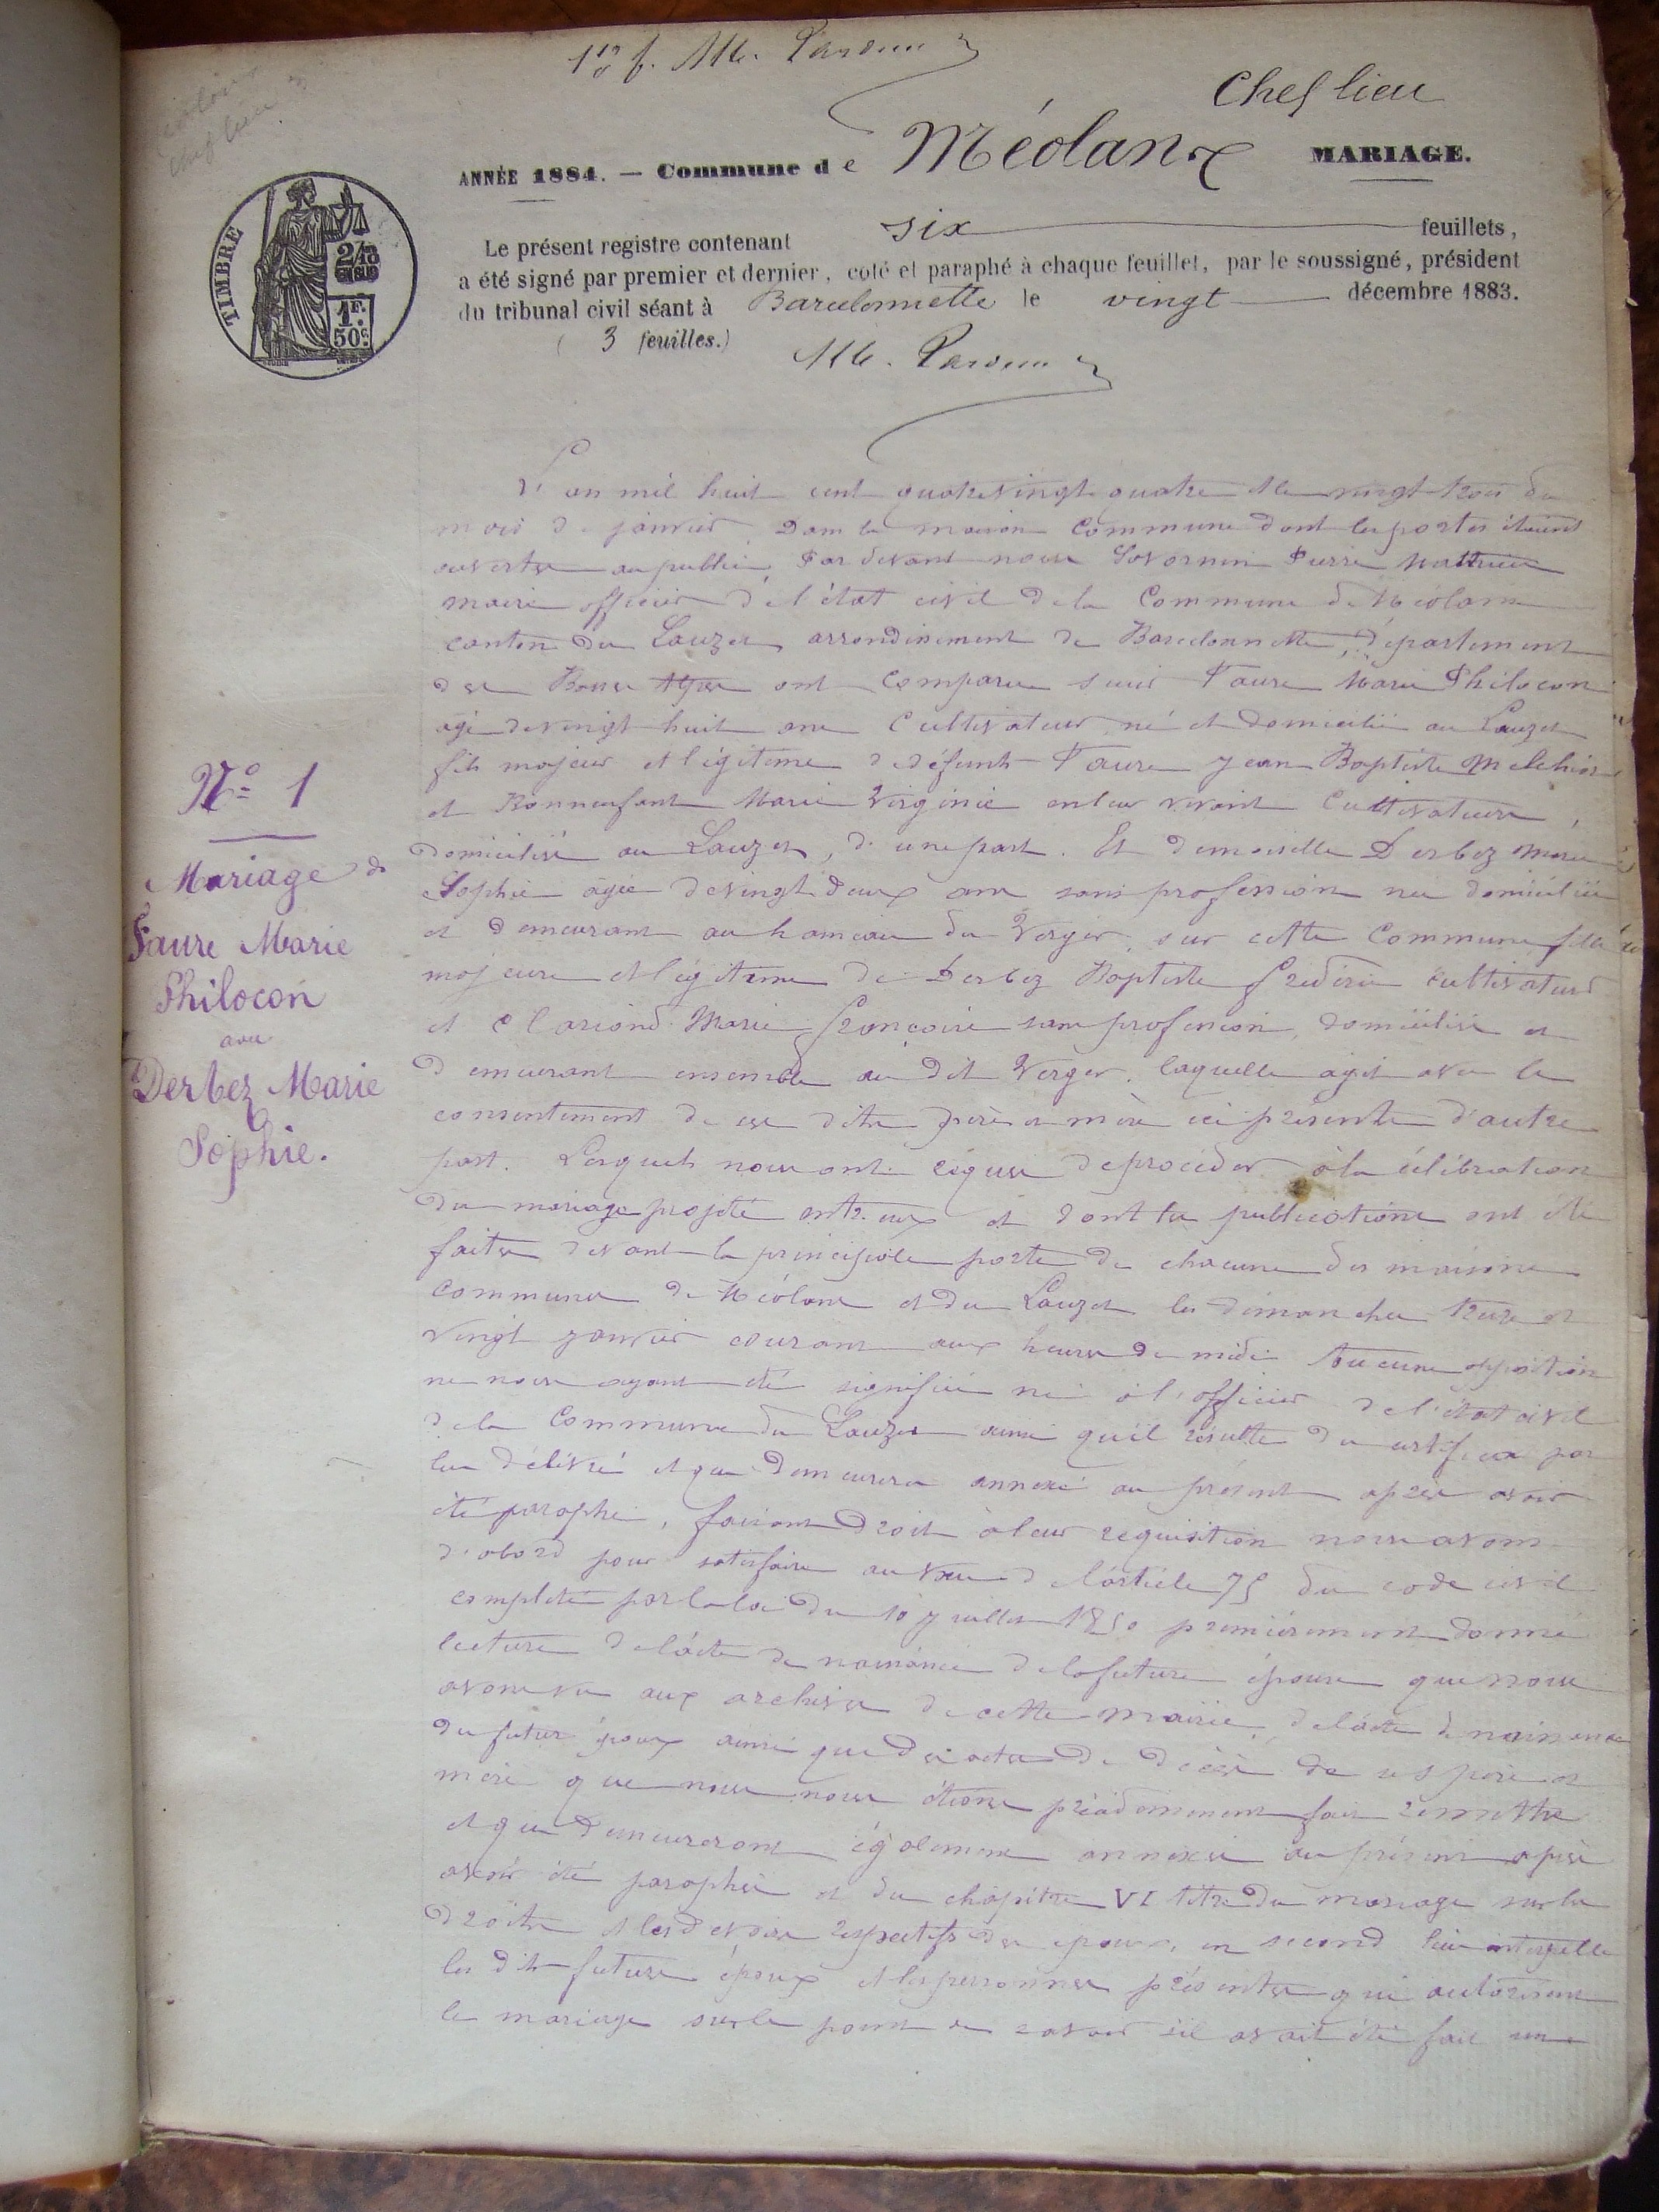 Chef lieu
ANNÉE 1884. — Commune de Méolans MARIAGE.
TIMBRE
1F.
50c
Le présent registre contenant six feuillets,
a été signé par premier et dernier, coté et paraphé à chaque feuillet, par le soussigné, président
du tribunal civil séant à Barcelonnette le vingt décembre 1883.
( 3 feuilles.)
L'an mil huit cent quatrevingt quatre et le vingt trois du
mois de janvier, Dans la maison Commune dont les portes étaient
ouvertes au public, Par devant nous Sovornin Pierre
maire officier de l'état civil de la Commune de Méolans
canton du Lauzet, arrondissement de Barcelonnette, département
des Basses Alpes ont Comparu sieur Faure Marie Philocon
agé de vingt huit ans Cultivateur né et domicilié au Lauzet
fils majeur et légitime de défunts Faure Jean Baptiste Melchior
et Bonnenfant Marie Virginie en leur vivant Cultivateurs,
domiciliés au Lauzet, d'une part. Et demoiselle Derbez Marie
Sophie agée de vingt deux ans sans profession née domiciliée
et demeurant au hameau du Verger, sur cette Commune fille
majeure et légitime de Derbez Baptiste Frédéric Cultivateur
et Clariond Marie Françoise sans profession, domiciliés et
demeurant ensemble au dit Verger, laquelle agit avec le
consentement de ses dits père et mère ici présents d'autre
part. Lesquels nous ont requis de procéder à la célébration
du mariage projeté entr'eux et dont les publications ont été
faites devant la principale porte de chacune des maisons
Communes de Méolans et du Lauzet les dimanches treize et
vingt janvier courant aux heures de midi Aucune opposition
ne nous ayant été signifiée ni à l'officier de l'état civil
de la Commune du Lauzet ainsi qu'il résulte du certificat par
lui délivré et qui demeurera annexé au présent après avoir
été paraphé, faisant droit à leur requisition nous avons
d'abord pour satisfaire au vœu de l'article 75 du code civil
complété par la loi du 10 juillet 1850 premièrement donné
lecture de l'acte de naissance de la future épouse que nous
avons vu aux archives de cette mairie, de l'acte de naissance
du futur époux ainsi que des actes de décès de ses père et
mère que nous nous étions précédemment fait remettre
et qui demeureront également annexés au présent après
avoir été paraphés et du chapitre VI titre du mariage sur les
droits et les devoirs respectifs des époux, en second lieu interpellé
les dits futurs époux et les personnes présentes qui autorisent
le mariage sur le point de savoir s'il avait été fait un
N° 1
Mariage de
Faure Marie
Philocon
avec
Derbez Marie
Sophie.